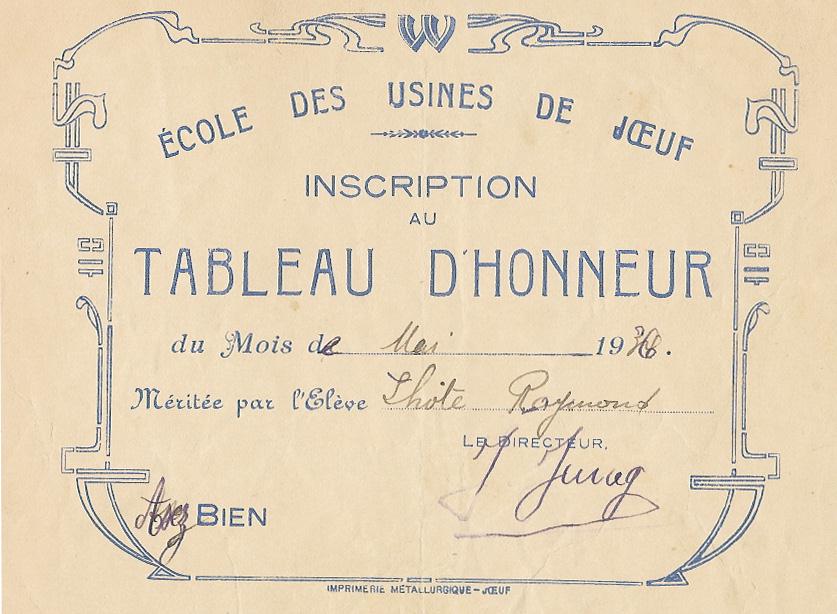 W
ÉCOLE DES USINES DE JŒUF
INSCRIPTION
AU
TABLEAU D'HONNEUR
du Mois de Mai 19
Méritée par l'Elève Lhôte Raymond
LE DIRECTEUR,
Assez BIEN
IMPRIMERIE METALLURGIQUE - JŒUF